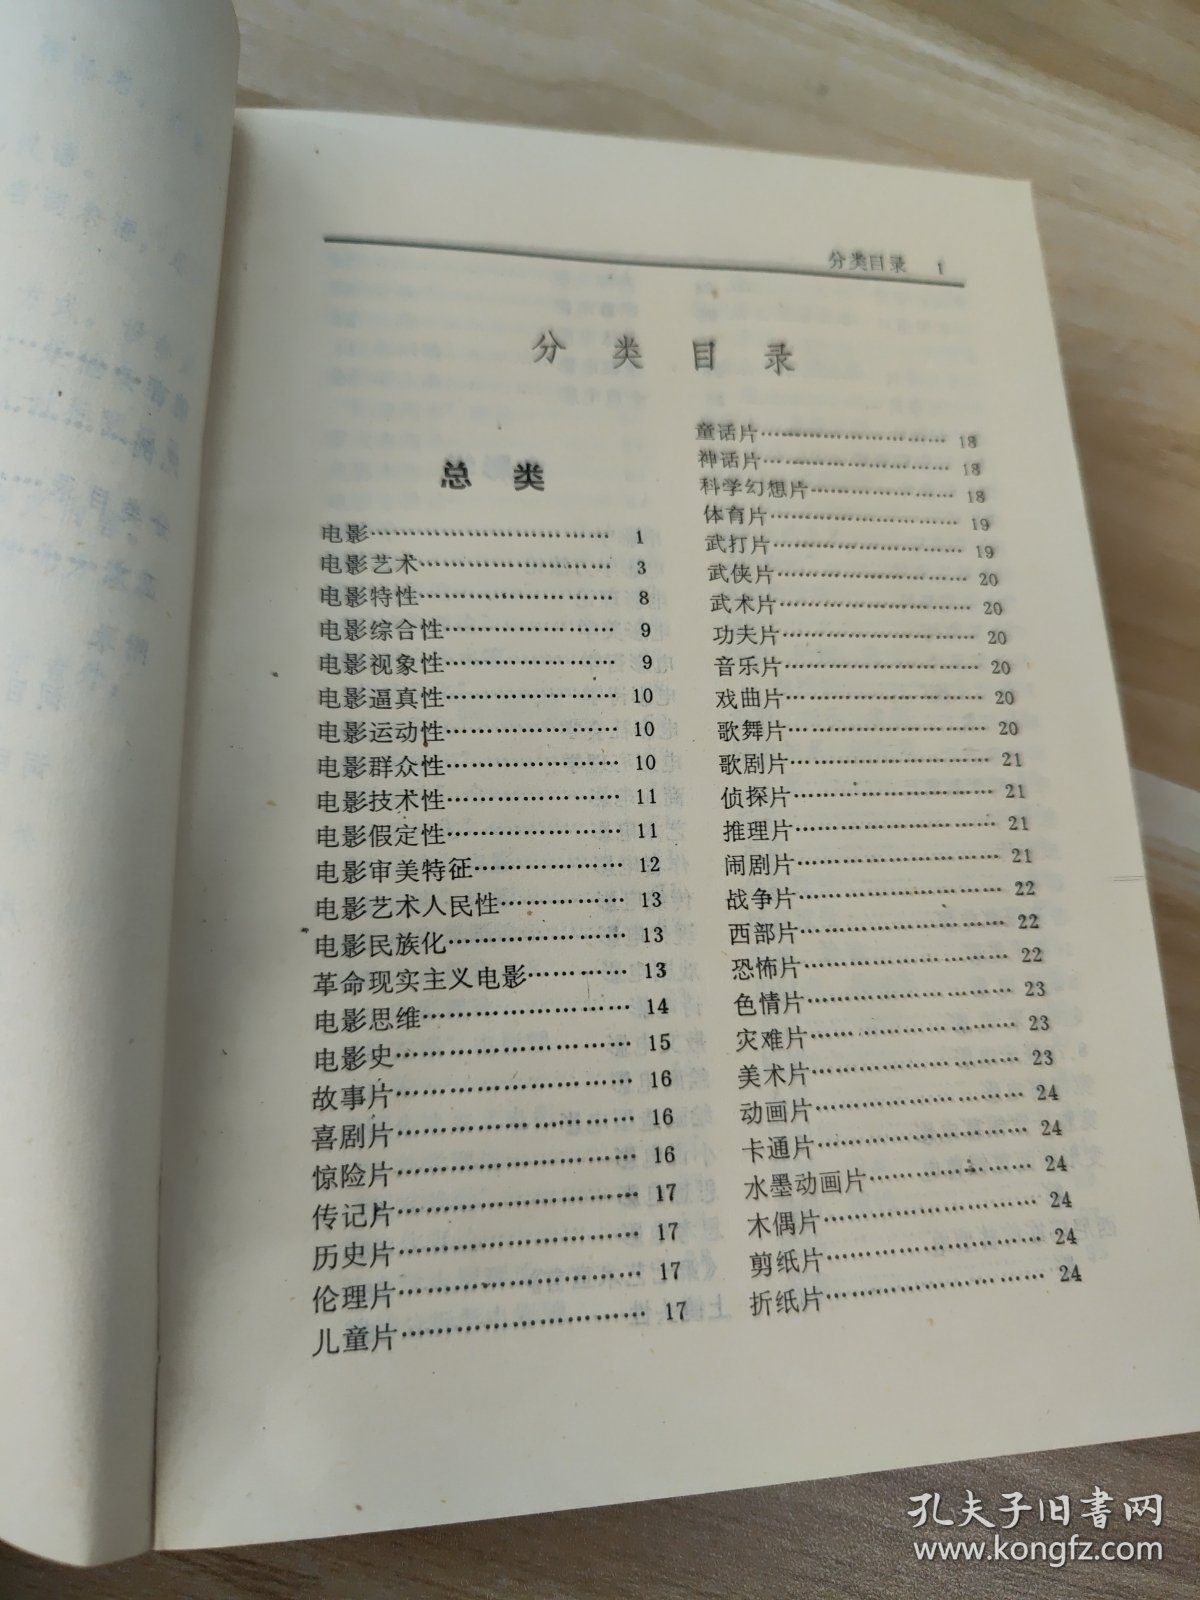 分类目录 1
分类目录
总类
电影………………………… 1
电影艺术…………………… 3
电影特性…………………… 8
电影综合性………………… 9
电影视象性………………… 9
电影逼真性………………… 10
电影运动性………………… 10
电影群众性………………… 10
电影技术性………………… 11
电影假定性………………… 11
电影审美特征……………… 12
电影艺术人民性…………… 13
电影民族化………………… 13
革命现实主义电影………… 13
电影思维…………………… 14
电影史……………………… 15
故事片……………………… 16
喜剧片……………………… 16
惊险片……………………… 16
传记片……………………… 17
历史片……………………… 17
伦理片……………………… 17
儿童片……………………… 17
童话片……………………… 18
神话片……………………… 18
科学幻想片………………… 18
体育片……………………… 19
武打片……………………… 19
武侠片……………………… 20
武术片……………………… 20
功夫片……………………… 20
音乐片……………………… 20
戏曲片……………………… 20
歌舞片……………………… 20
歌剧片……………………… 21
侦探片……………………… 21
推理片……………………… 21
闹剧片……………………… 21
战争片……………………… 22
西部片……………………… 22
恐怖片……………………… 22
色情片……………………… 23
灾难片……………………… 23
美术片……………………… 23
动画片……………………… 24
卡通片……………………… 24
水墨动画片………………… 24
木偶片……………………… 24
剪纸片……………………… 24
折纸片……………………… 24
孔夫子旧书网
www.kongfz.com